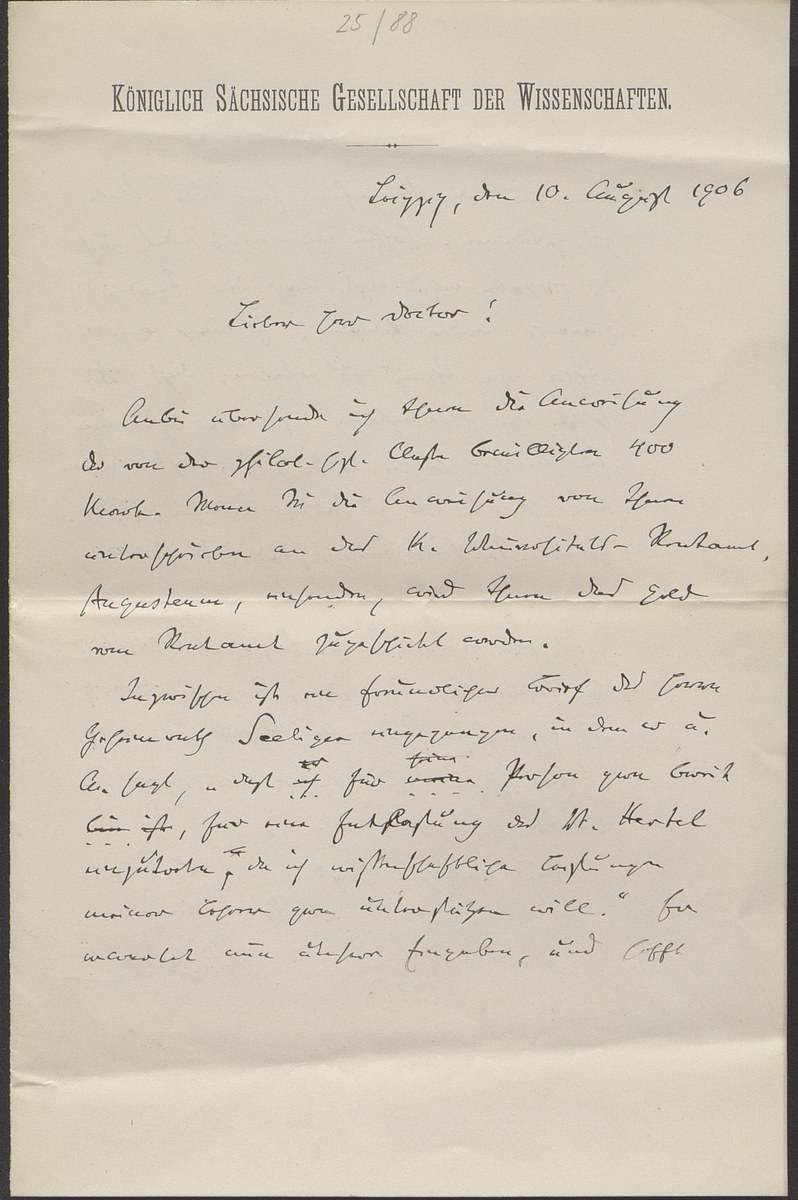 25/88
KÖNIGLICH SÄCHSISCHE GESELLSCHAFT DER WISSENSCHAFTEN.
Leipzig, den 10. August 1906
Lieber Herr Doctor!
Anbei übersende ich Ihnen die Anweisung
der von der philol.-hist. Classe bewilligten 400
Mark. Wenn Sie die Anweisung von Ihnen
unterschrieben an das K. Universitäts-Rentamt,
Augusteum, einsenden, wird Ihnen das Geld
vom Rentamt zugeschickt werden.
Inzwischen ist ein freundlicher Brief des Herrn
Geheimrath Seeliger eingegangen, in dem er u.
A. sagt, „dass ich er für meine seine Person gern bereit
bin ist, für eine Entlastung des Dr. Hertel
einzutreten, da ich wissenschaftliche Leistungen
meiner Lehrer gern unterstützen will.“ Er
erwartet nun unsere Eingaben, und hofft